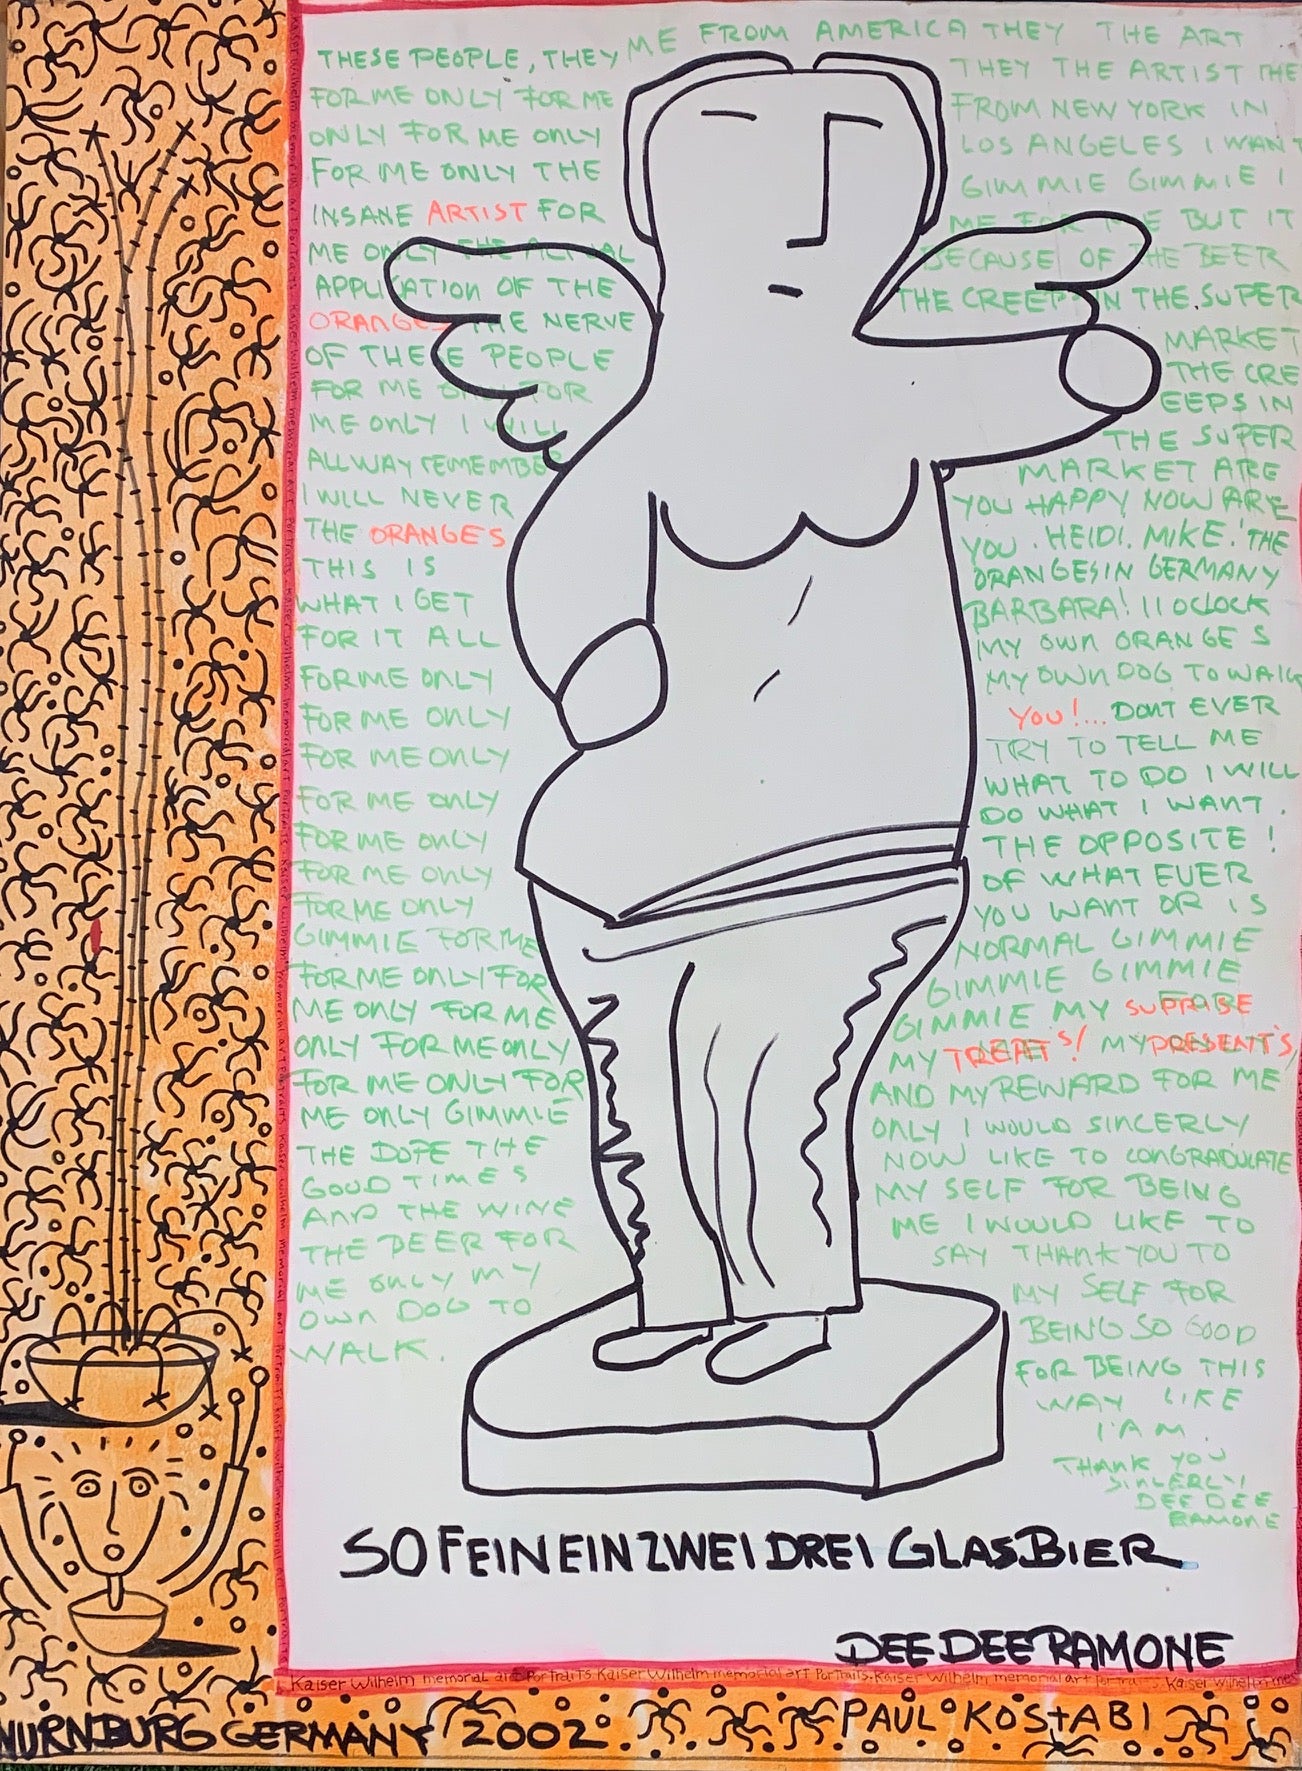 THESE PEOPLE, THEY
FOR ME ONLY FOR ME
ONLY FOR ME ONLY
FOR ME ONLY THE
INSANE ARTIST FOR
ME ONLY THE ACTUAL
APPLICATION OF THE
ORANGES THE NERVE
OF THESE PEOPLE
FOR ME ONLY FOR
ME ONLY I WILL
ALLWAY REMEMBE
I WILL NEVER
THE ORANGES
THIS IS
WHAT I GET
FOR IT ALL
FOR ME ONLY
FOR ME ONLY
FOR ME ONLY
FOR ME ONLY
FOR ME ONLY
FOR ME ONLY
FOR ME ONLY
GIMMIE FOR ME
FOR ME ONLY FOR
ME ONLY FOR ME
ONLY FOR ME ONLY
FOR ME ONLY FOR
ME ONLY GIMMIE
THE DOPE THE
GOOD TIMES
AND THE WINE
THE BEER FOR
ME ONLY MY
OWN DOG TO
WALK.
ME FROM AMERICA THEY THE ART
THEY THE ARTIST THE
FROM NEW YORK IN
LOS ANGELES I WANT
GIMMIE GIMMIE I
ME FOR ME BUT IT
BECAUSE OF THE BEER
THE CREEPS IN THE SUPER
MARKET
THE CRE
EEPS IN
THE SUPER
MARKET ARE
YOU HAPPY NOW ARE
YOU. HEIDI. MIKE! THE
ORANGES IN GERMANY
BARBARA! 11 OCLOCK
MY OWN ORANGES
MY OWN DOG TO WALK
YOU!... DONT EVER
TRY TO TELL ME
WHAT TO DO I WILL
DO WHAT I WANT.
THE OPPOSITE!
OF WHAT EVER
YOU WANT OR IS
NORMAL GIMMIE
GIMMIE GIMMIE
GIMMIE MY SUPRISE
MY TREAT'S! MY PRESENT'S
AND MY REWARD FOR ME
ONLY I WOULD SINCERLY
NOW LIKE TO CONGRADULATE
MY SELF FOR BEING
ME I WOULD LIKE TO
SAY THANK YOU TO
MY SELF FOR
BEING SO GOOD
FOR BEING THIS
WAY LIKE
I'AM.
THANK YOU
SINCERLY!
DEE DEE
RAMONE
SO FEIN EIN ZWEI DREI GLAS.BIER
DEE DEE RAMONE
Kaiser Wilhelm memorial art PorTraiTs. Kaiser Wilhelm memorial art PorTraiTs. Kaiser Wilhelm memorial art portraits. Kaiser Wilhelm
NURNBURG GERMANY 2002 PAUL KOSTABI